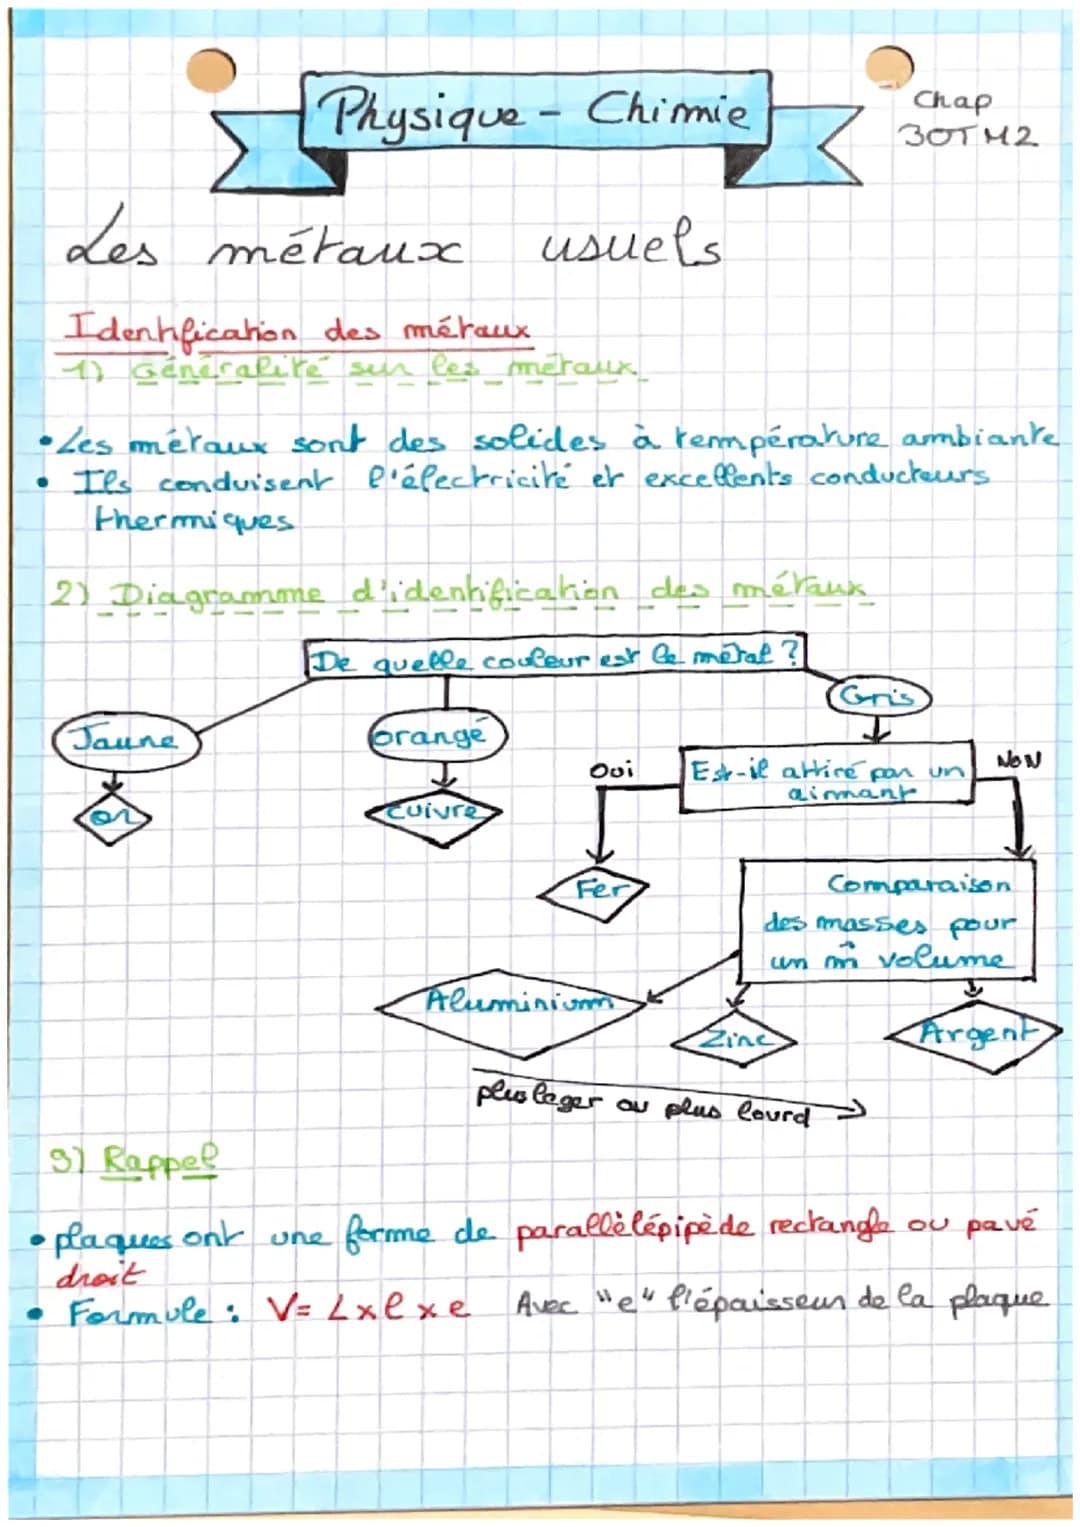 Physique - Chimie
Chap
3OTM2
Les métaux usuels
Identification des métaux
1) Généralité sur les métaux
• Les métaux sont des solides à température ambiante
• Ils conduisent l'électricité et excellents conducteurs
thermiques
2) Diagramme d'identification des métaux
De quelle couleur est le métal ?
Jaune
orangé
Gris
or
cuivre
Oui
Est-il attiré par un
aimant
NON
Fer
Comparaison
des masses pour
un m̂ volume
Aluminium
Zinc
Argent
plus léger au plus lourd
3) Rappel
• plaques ont une forme de parallèlépipède rectangle ou pavé
droit
• Formule : V= L x l x e Avec "e" l'épaisseur de la plaque